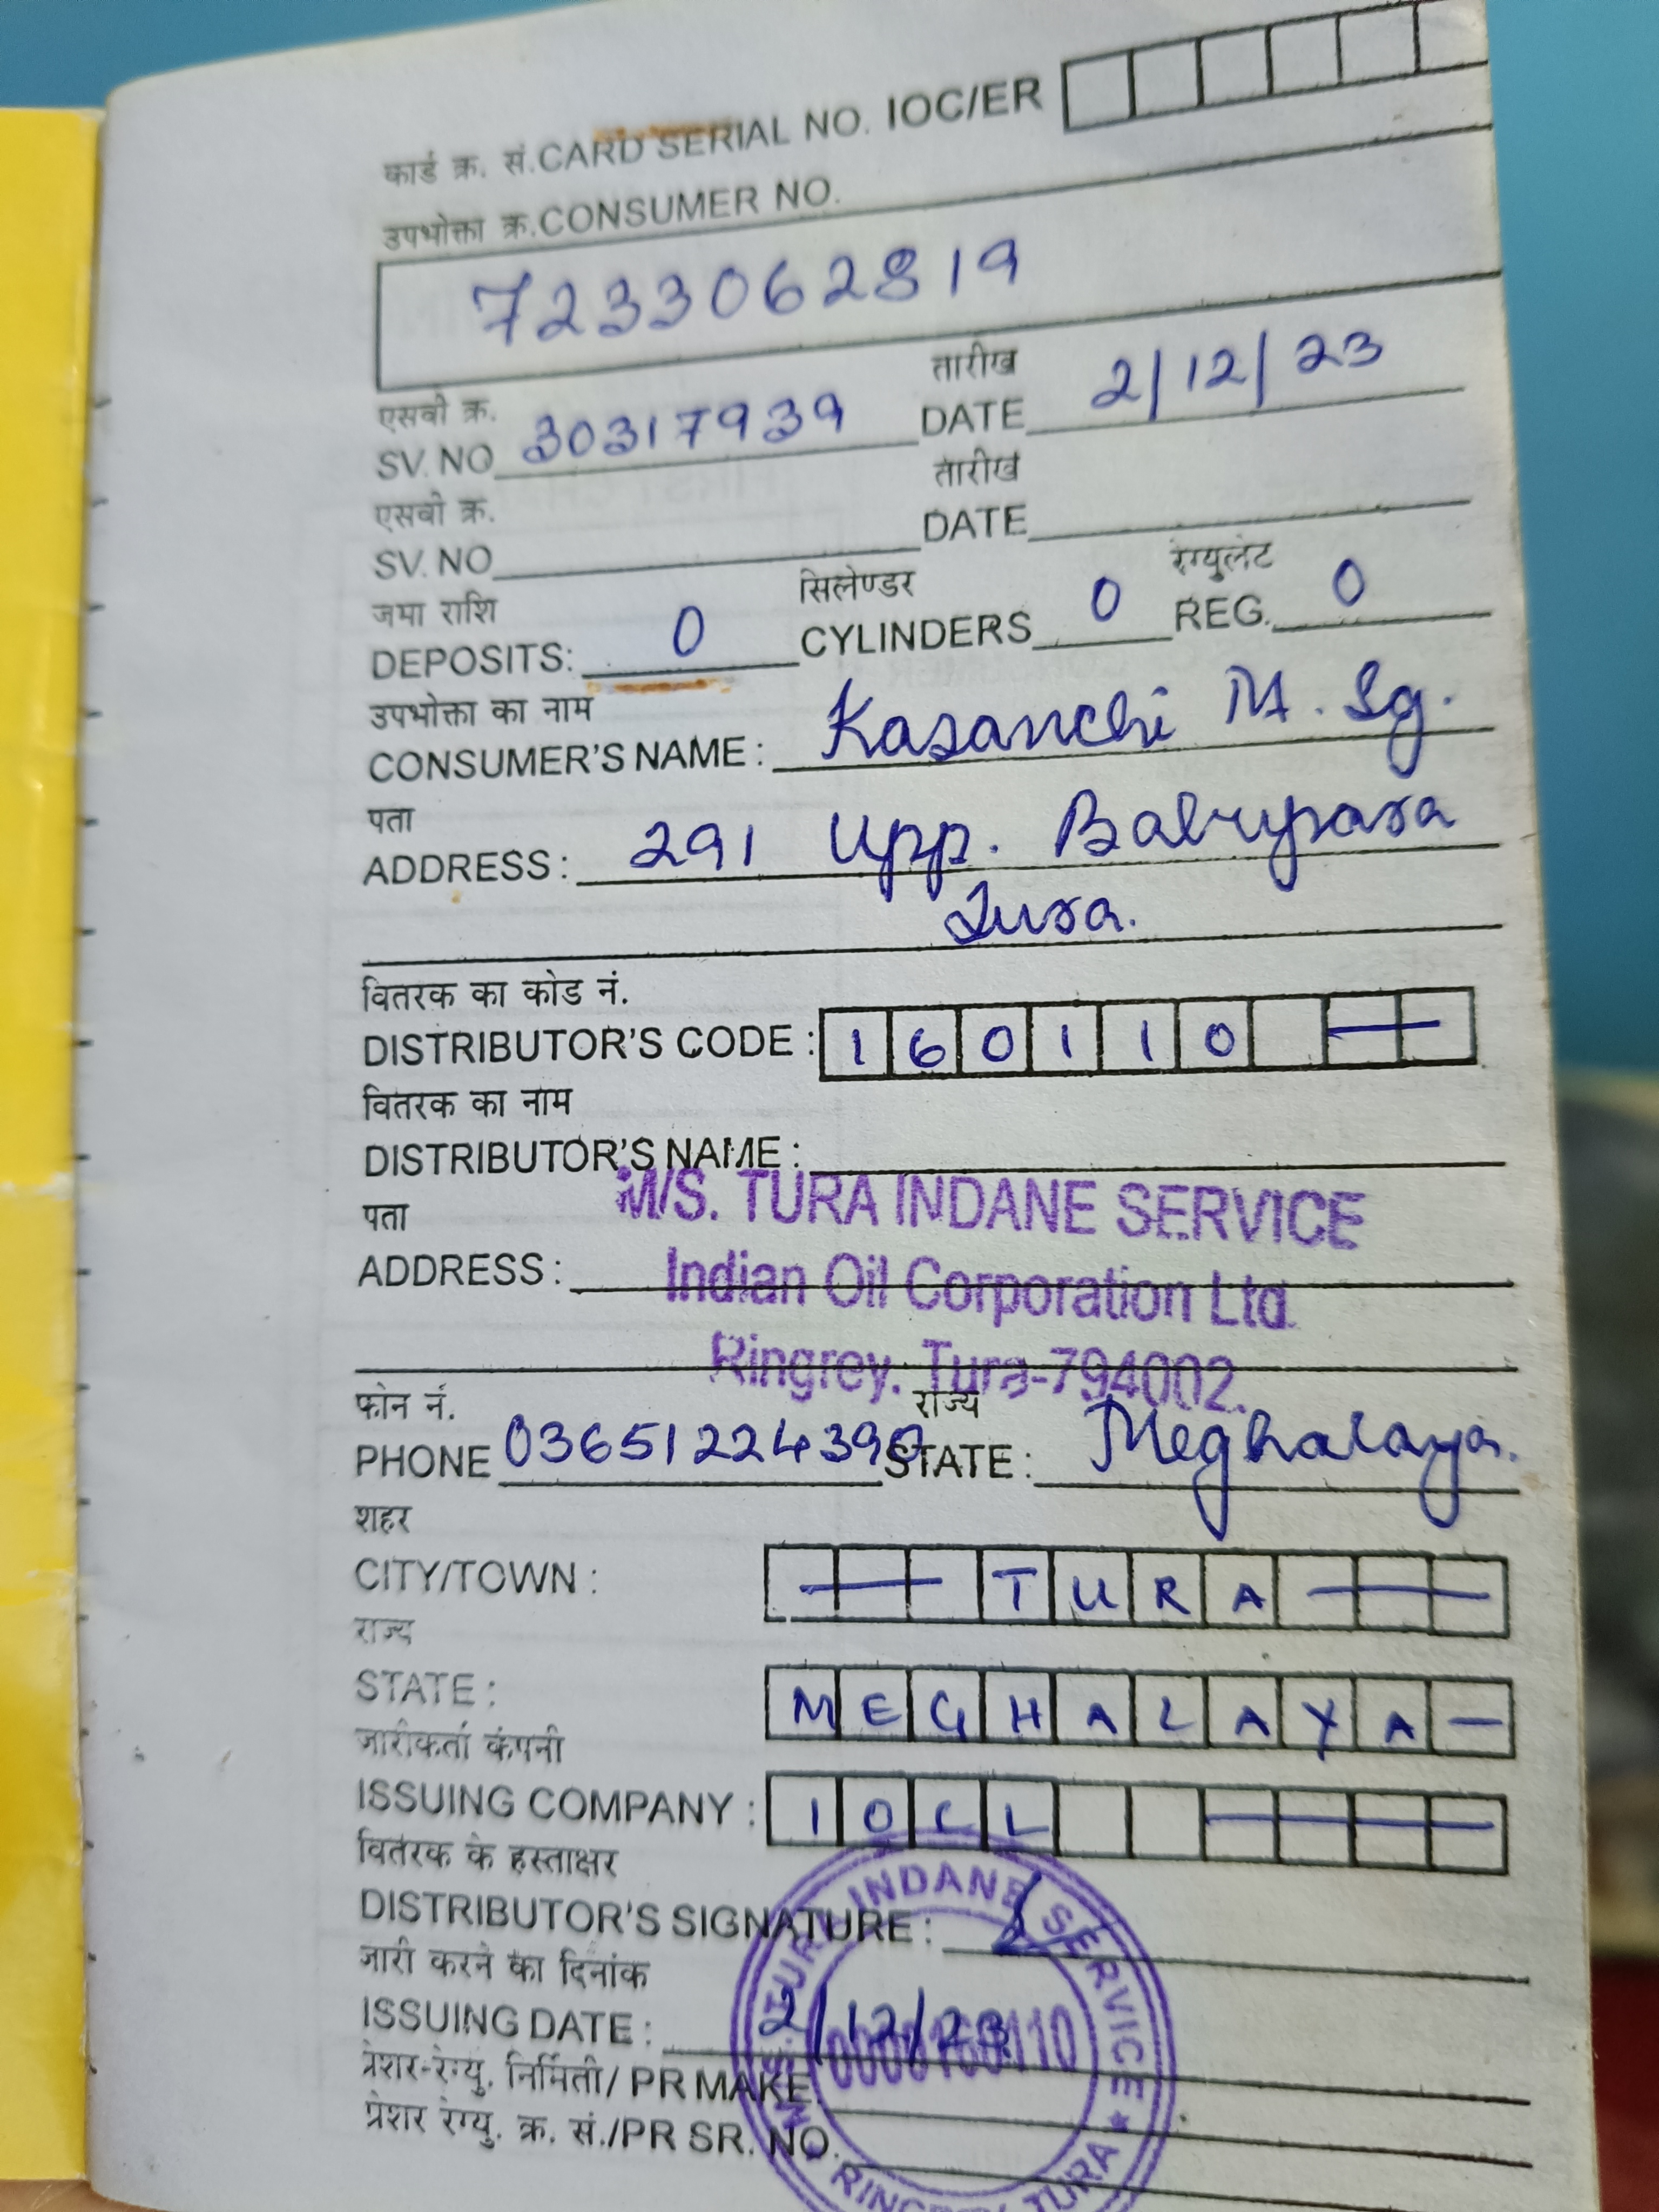 कार्ड क्र. सं. CARD SERIAL NO. IOC/ER
उपभोक्ता क्र. CONSUMER NO.
7233062819
एसवी क्र. तारीख
SV. NO 30317939 DATE 2/12/23
एसवी क्र. तारीख
SV. NO DATE
जमा राशि सिलेण्डर रेग्युलेट
DEPOSITS: 0 CYLINDERS 0 REG. 0
उपभोक्ता का नाम
CONSUMER'S NAME : Kasanchi M. Sg.
पता
ADDRESS : 291 Upp. Babupara
Tura.
वितरक का कोड नं.
DISTRIBUTOR'S CODE : 160110
वितरक का नाम
DISTRIBUTOR'S NAME :
M/S. TURA INDANE SERVICE
पता
ADDRESS :
Indian Oil Corporation Ltd.
Ringrey. Tura-794002.
फोन नं. राज्य
PHONE 03651224390 STATE : Meghalaya.
शहर
CITY/TOWN : TURA
राज्य
STATE : MEGHALAYA
जारीकर्ता कंपनी
ISSUING COMPANY : IOCL
वितरक के हस्ताक्षर
DISTRIBUTOR'S SIGNATURE :
जारी करने का दिनांक
ISSUING DATE : 2/12/23
प्रेशर-रेग्यु. निर्मिती/ PR MAKE
प्रेशर रेग्यु. क्र. सं./PR SR. NO.
M/S. TURA INDANE SERVICE ★ RINGREY TURA
0000160110